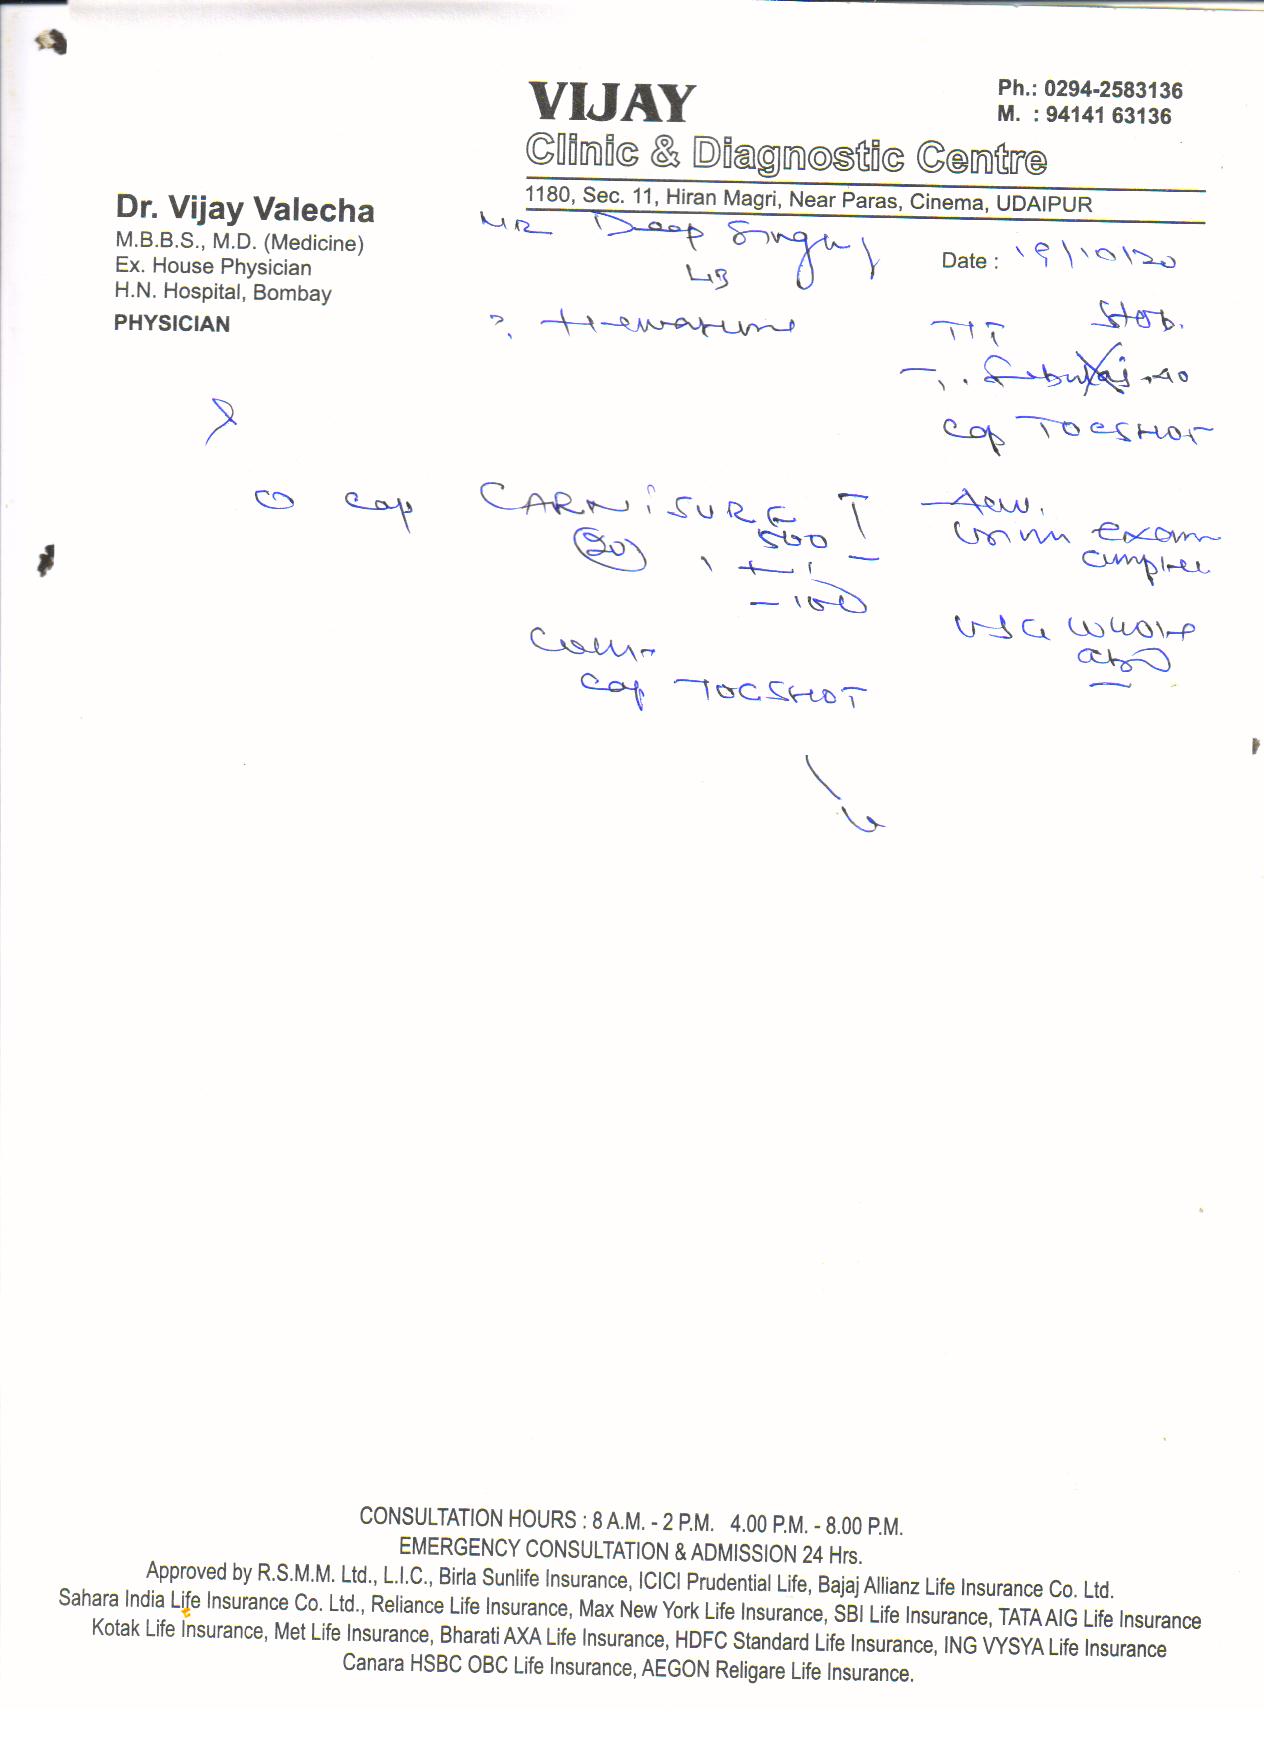 VIJAY
Clinic & Diagnostic Centre
Ph.: 0294-2583136
M. : 94141 63136
1180, Sec. 11, Hiran Magri, Near Paras, Cinema, UDAIPUR
Dr. Vijay Valecha
M.B.B.S., M.D. (Medicine)
Ex. House Physician
H.N. Hospital, Bombay
PHYSICIAN
MR Deep Singh
Date : 19/10/20
Stop.
40
Cap TOCSHOT
Cap CARNISURE
500
Adv.
Urine Exam
Complete
USG Whole
abd
Cap TOCSHOT
CONSULTATION HOURS : 8 A.M. - 2 P.M. 4.00 P.M. - 8.00 P.M.
EMERGENCY CONSULTATION & ADMISSION 24 Hrs.
Approved by R.S.M.M. Ltd., L.I.C., Birla Sunlife Insurance, ICICI Prudential Life, Bajaj Allianz Life Insurance Co. Ltd.
Sahara India Life Insurance Co. Ltd., Reliance Life Insurance, Max New York Life Insurance, SBI Life Insurance, TATA AIG Life Insurance
Kotak Life Insurance, Met Life Insurance, Bharati AXA Life Insurance, HDFC Standard Life Insurance, ING VYSYA Life Insurance
Canara HSBC OBC Life Insurance, AEGON Religare Life Insurance.